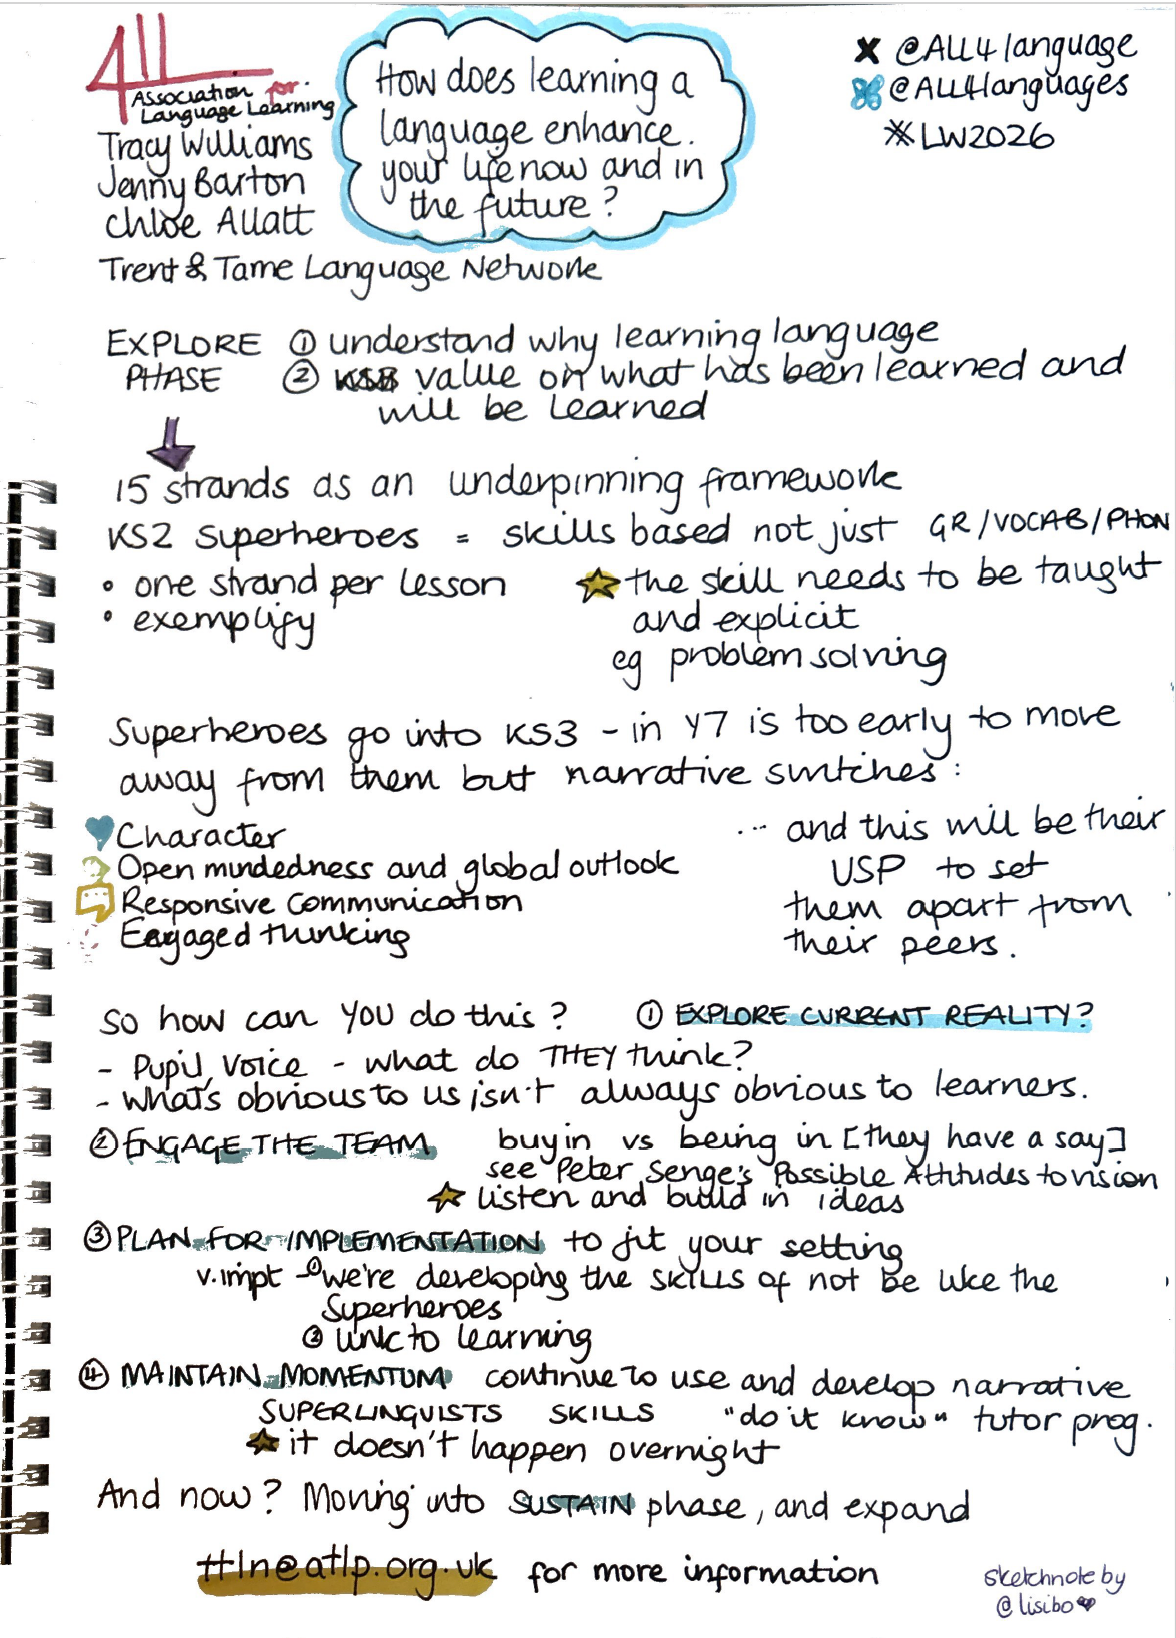 ALL
Association for
Language Learning
Tracy Williams
Jenny Barton
Chloe Allatt
Trent & Tame Language Network
How does learning a
language enhance.
your life now and in
the future?
X @ALL4language
@ALL4languages
#LW2026
EXPLORE PHASE
① understand why learning language
② value on what has been learned and
will be learned
15 strands as an underpinning framework
KS2 Superheroes = skills based not just GR/VOCAB/PHON
• one strand per lesson
• exemplify
the skill needs to be taught
and explicit
eg problem solving
Superheroes go into KS3 - in Y7 is too early to move
away from them but narrative switches:
Character
Open mindedness and global outlook
Responsive Communication
Engaged thinking
... and this will be their
USP to set
them apart from
their peers.
So how can YOU do this? ① EXPLORE CURRENT REALITY?
- Pupil Voice - what do THEY think?
- What's obvious to us isn't always obvious to learners.
② ENGAGE THE TEAM buy in vs being in [they have a say]
see Peter Senge's Possible Attitudes to vision
listen and build in ideas
③ PLAN FOR IMPLEMENTATION to fit your setting
v.impt - ① we're developing the SKILLS of not be like the
Superheroes
② link to learning
④ MAINTAIN MOMENTUM continue to use and develop narrative
SUPERLINGUISTS SKILLS "do it know" tutor prog.
it doesn't happen overnight
And now? Moving into SUSTAIN phase, and expand
ttln@atlp.org.uk for more information
sketchnote by
@lisibo